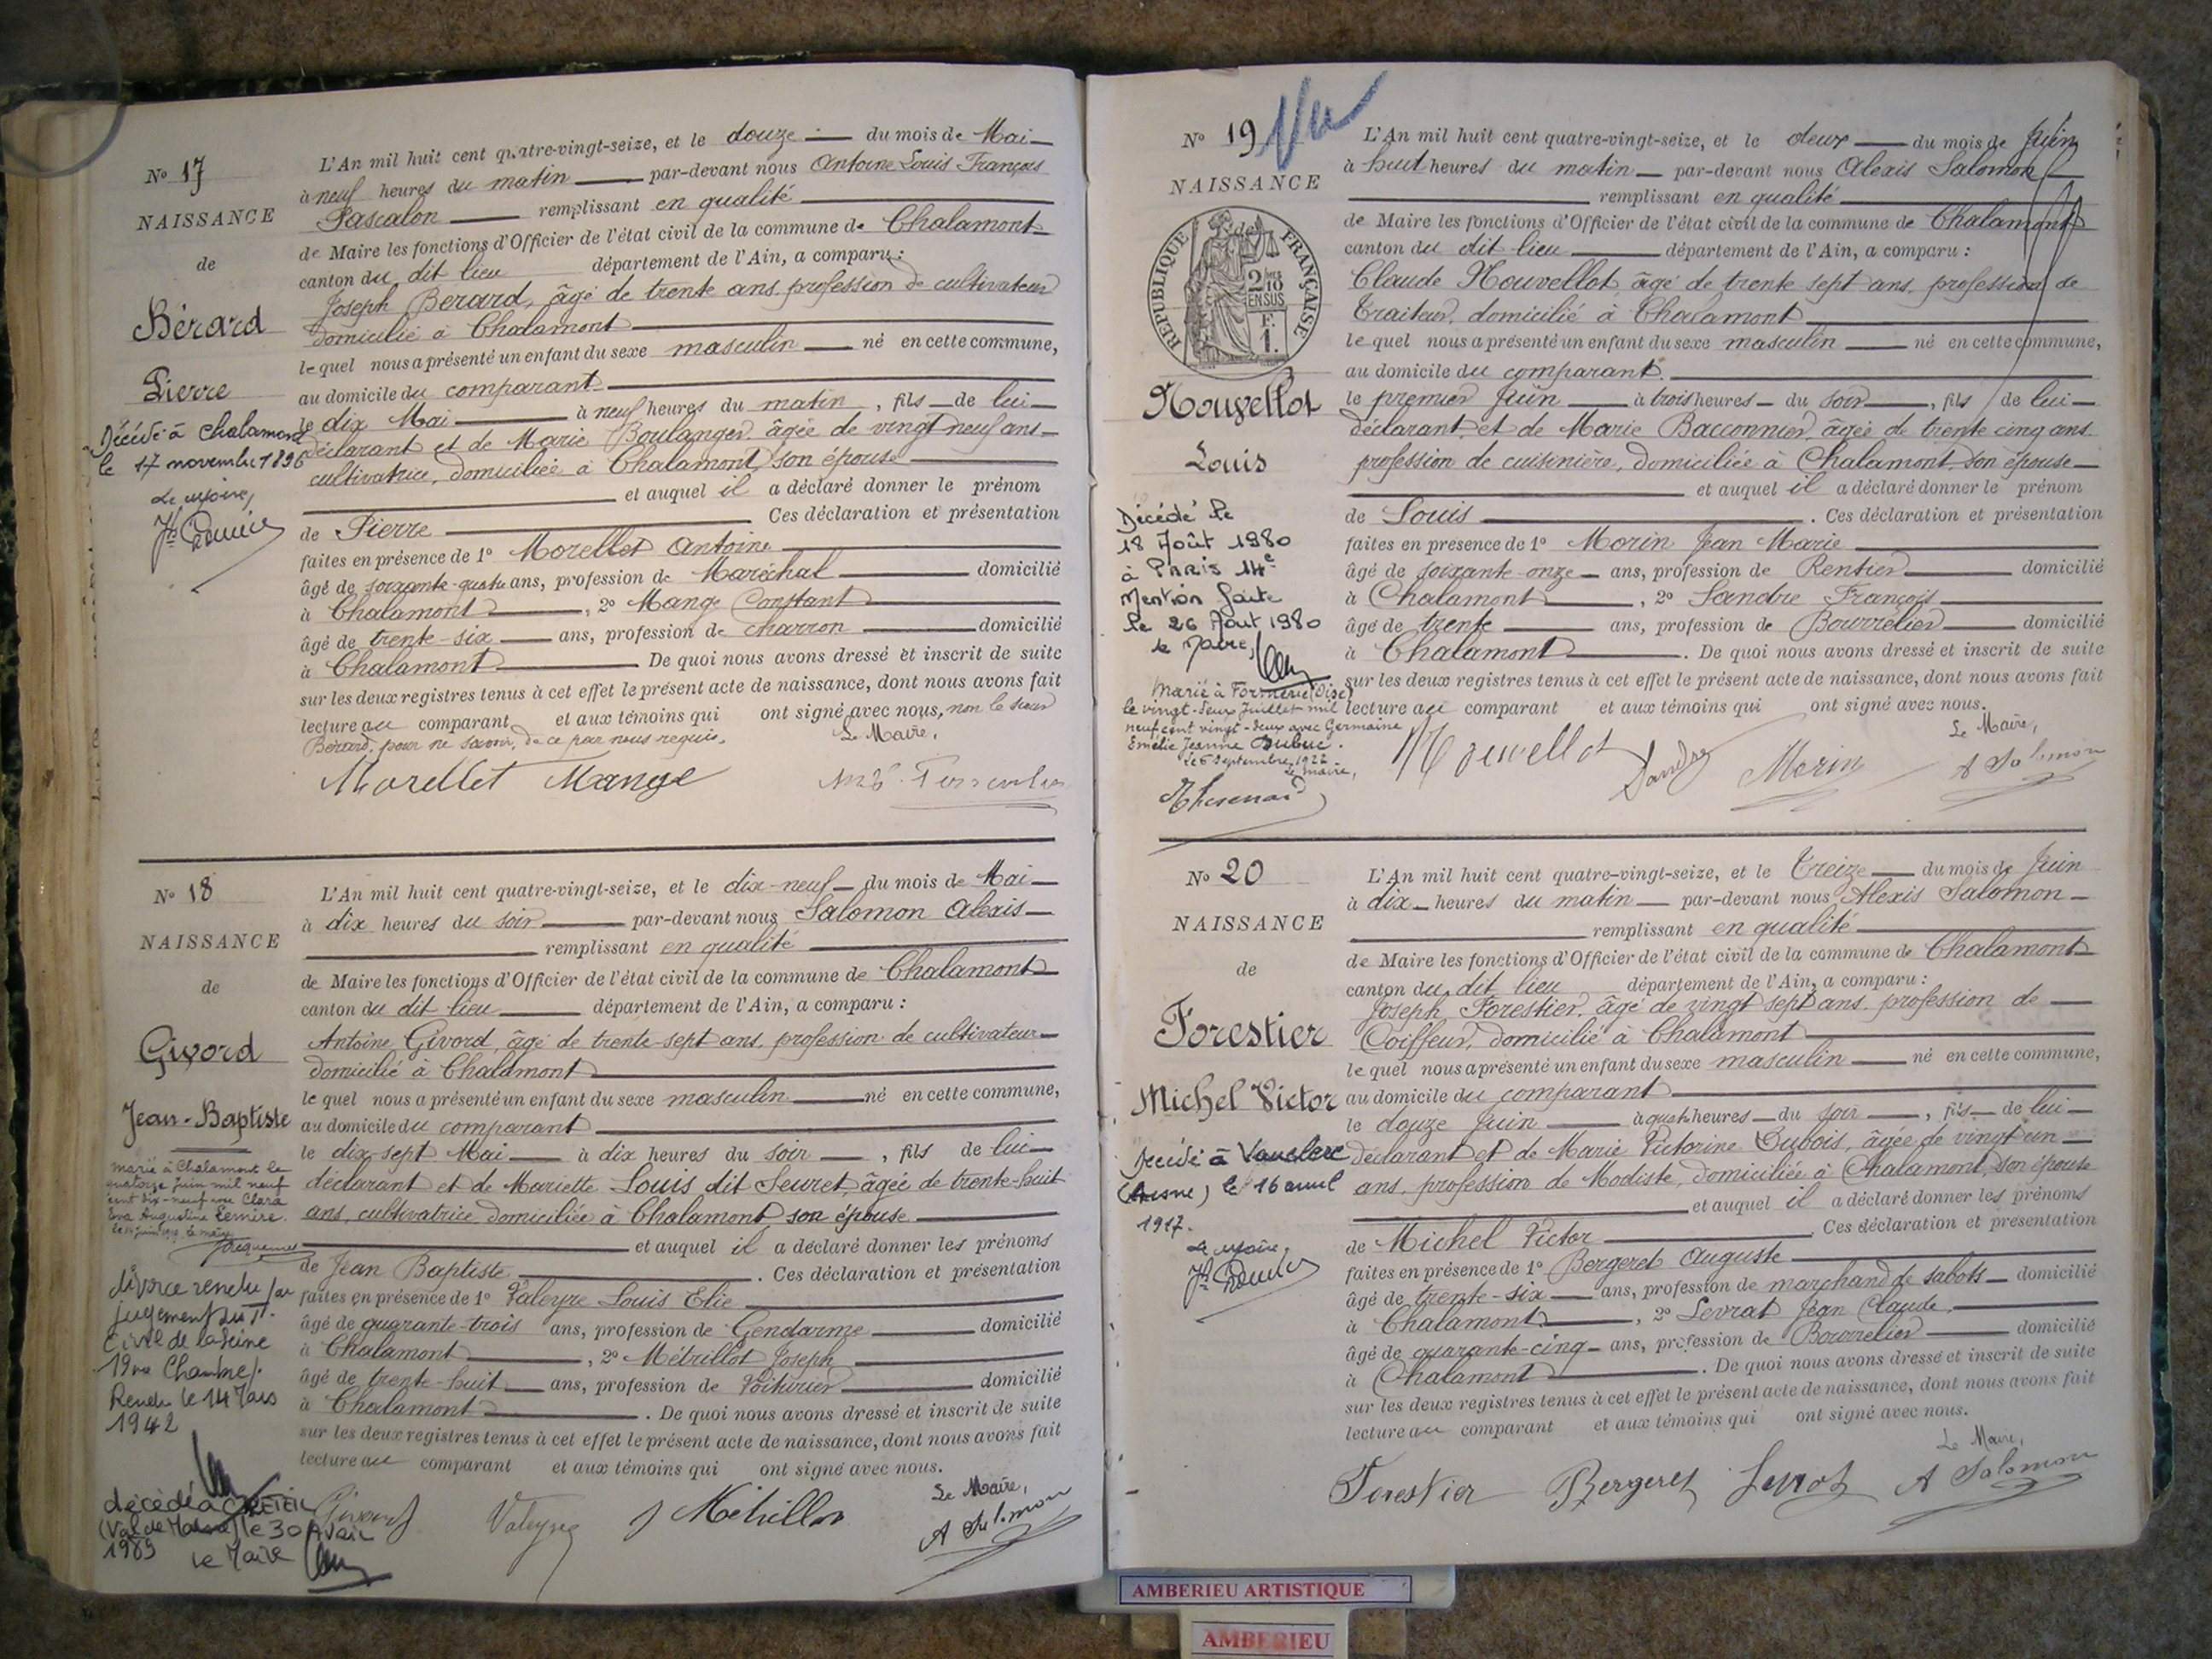 No 17
NAISSANCE
de
Bérard
Pierre
Décédé à Chalamont
le 17 novembre 1896
Le Maire,
L'An mil huit cent quatre-vingt-seize, et le douze du mois de Mai
à neuf heures du matin par-devant nous Antoine Louis François
Pascalon remplissant en qualité
de Maire les fonctions d'Officier de l'état civil de la commune de Chalamont
canton du dit lieu département de l'Ain, a comparu :
Joseph Bérard, âgé de trente ans, profession de cultivateur
domicilié à Chalamont
le quel nous a présenté un enfant du sexe masculin né en cette commune,
au domicile du comparant
le dix Mai à neuf heures du matin, fils de lui
déclarant et de Marie Boulanger, âgée de vingt neuf ans
cultivatrice, domiciliée à Chalamont, son épouse
et auquel il a déclaré donner le prénom
de Pierre Ces déclaration et présentation
faites en présence de 1° Morellet Antoine
âgé de soixante-quatre ans, profession de Maréchal domicilié
à Chalamont, 2° Mange Constant
âgé de trente-six ans, profession de charron domicilié
à Chalamont De quoi nous avons dressé et inscrit de suite
sur les deux registres tenus à cet effet le présent acte de naissance, dont nous avons fait
lecture au comparant et aux témoins qui ont signé avec nous, non le sieur
Bérard, pour ne savoir, de ce par nous requis.
Le Maire,
Morellet Mange
No 18
NAISSANCE
de
Givord
Jean-Baptiste
marié à Chalamont le
quatorze juin mil neuf
cent dix-neuf avec Clara
Eva Augustine Lemire.
divorce rendu par
jugement du T.
Civil de la Seine
19me Chambre
Rendu le 14 Mars
1942
décédé à CRETEIL
(Val de Marne) le 30 AVRIL
1989
Le Maire
L'An mil huit cent quatre-vingt-seize, et le dix-neuf du mois de Mai
à dix heures du soir par-devant nous Salomon Alexis
remplissant en qualité
de Maire les fonctions d'Officier de l'état civil de la commune de Chalamont
canton du dit lieu département de l'Ain, a comparu :
Antoine Givord, âgé de trente-sept ans, profession de cultivateur
domicilié à Chalamont
le quel nous a présenté un enfant du sexe masculin né en cette commune,
au domicile du comparant
le dix-sept Mai à dix heures du soir, fils de lui
déclarant et de Mariette Louis dit Seuret, âgée de trente-huit
ans, cultivatrice domiciliée à Chalamont, son épouse
et auquel il a déclaré donner les prénoms
de Jean Baptiste. Ces déclaration et présentation
faites en présence de 1° Valeyre Louis Elie
âgé de quarante-trois ans, profession de Gendarme domicilié
à Chalamont, 2° Métrillot Joseph
âgé de trente-huit ans, profession de Voiturier domicilié
à Chalamont. De quoi nous avons dressé et inscrit de suite
sur les deux registres tenus à cet effet le présent acte de naissance, dont nous avons fait
lecture au comparant et aux témoins qui ont signé avec nous.
Le Maire,
Givord Valeyre J Métrillot A Salomon
No 19 Vu
NAISSANCE
REPUBLIQUE FRANÇAISE
2/10 EN SUS
F. 1.
Nouvellot
Louis
Décédé le
18 Août 1980
à PARIS 14e
Mention faite
le 26 Août 1980
le Maire,
Marié à Formerie (Oise)
le vingt-deux Juillet mil
neuf cent vingt-deux avec Germaine
Emélie Jeanne Dubuc.
le 6 septembre 1922
Le maire,
L'An mil huit cent quatre-vingt-seize, et le deux du mois de Juin
à huit heures du matin par-devant nous Alexis Salomon
remplissant en qualité
de Maire les fonctions d'Officier de l'état civil de la commune de Chalamont
canton du dit lieu département de l'Ain, a comparu :
Claude Nouvellot âgé de trente sept ans, profession de
Traiteur, domicilié à Chalamont
le quel nous a présenté un enfant du sexe masculin né en cette commune,
au domicile du comparant.
le premier Juin à trois heures du soir, fils de lui
déclarant, et de Marie Bacconnier, âgée de trente cinq ans.
profession de cuisinière, domiciliée à Chalamont, son épouse
et auquel il a déclaré donner le prénom
de Louis. Ces déclaration et présentation
faites en présence de 1° Morin Jean Marie
âgé de soixante-onze ans, profession de Rentier domicilié
à Chalamont, 2° Sandre François
âgé de trente ans, profession de Bourrelier domicilié
à Chalamont. De quoi nous avons dressé et inscrit de suite
sur les deux registres tenus à cet effet le présent acte de naissance, dont nous avons fait
lecture au comparant et aux témoins qui ont signé avec nous.
Le Maire,
Nouvellot Sandre Morin A Salomon
No 20
NAISSANCE
de
Forestier
Michel Victor
Décédé à Vauclerc
(Aisne) le 16 avril
1917.
Le Maire,
L'An mil huit cent quatre-vingt-seize, et le treize du mois de Juin
à dix heures du matin par-devant nous Alexis Salomon
remplissant en qualité
de Maire les fonctions d'Officier de l'état civil de la commune de Chalamont
canton du dit lieu département de l'Ain, a comparu :
Joseph Forestier, âgé de vingt sept ans, profession de
Coiffeur, domicilié à Chalamont
le quel nous a présenté un enfant du sexe masculin né en cette commune,
au domicile du comparant
le douze Juin à quatre heures du soir, fils de lui
déclarant et de Marie Victorine Dubois, âgée de vingt un
ans, profession de Modiste, domiciliée à Chalamont, son épouse
et auquel il a déclaré donner les prénoms
de Michel Victor. Ces déclaration et présentation
faites en présence de 1° Bergeret Auguste
âgé de trente-six ans, profession de marchand de sabots domicilié
à Chalamont, 2° Levrat Jean Claude.
âgé de quarante-cinq ans, profession de Bourrelier domicilié
à Chalamont. De quoi nous avons dressé et inscrit de suite
sur les deux registres tenus à cet effet le présent acte de naissance, dont nous avons fait
lecture au comparant et aux témoins qui ont signé avec nous.
Le Maire,
Forestier Bergeret Levrat A Salomon
AMBERIEU ARTISTIQUE
AMBERIEU